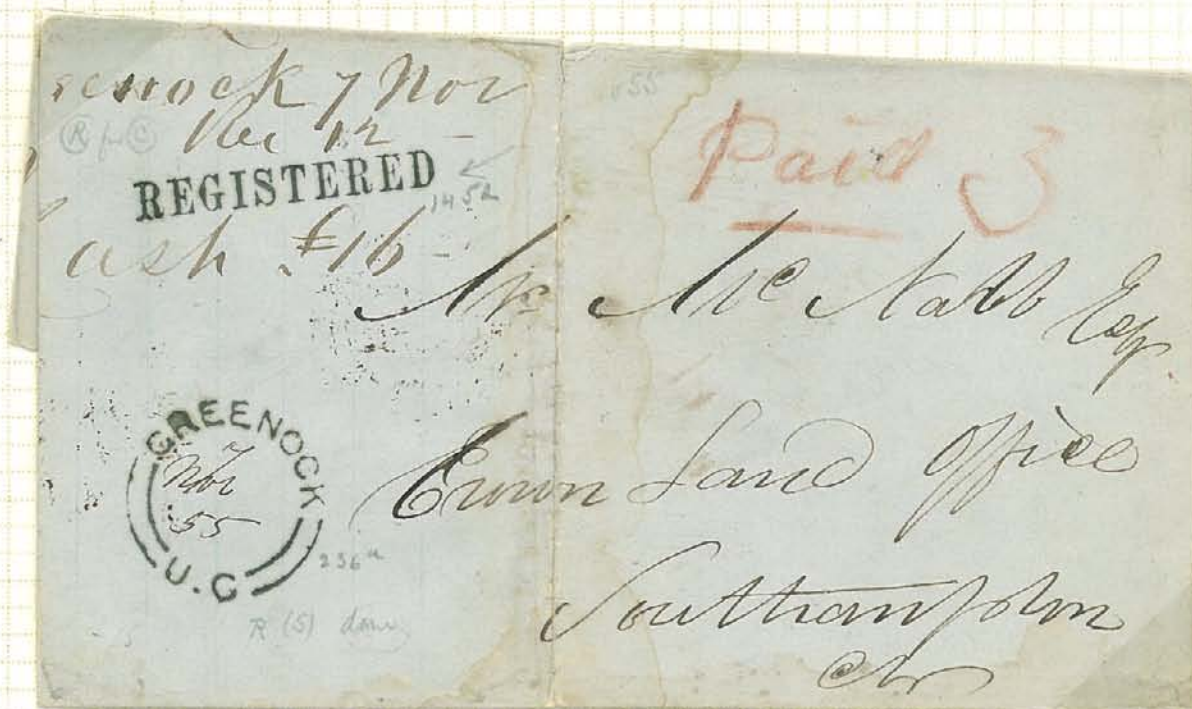 enock 7 Nor
Rec 12
REGISTERED
1452
ash £16
055
Paid 3
Mr Mc Nabb Esq
Crown Land Office
Southampton
GREENOCK
7
Nov
55
U.C
236
R (5)